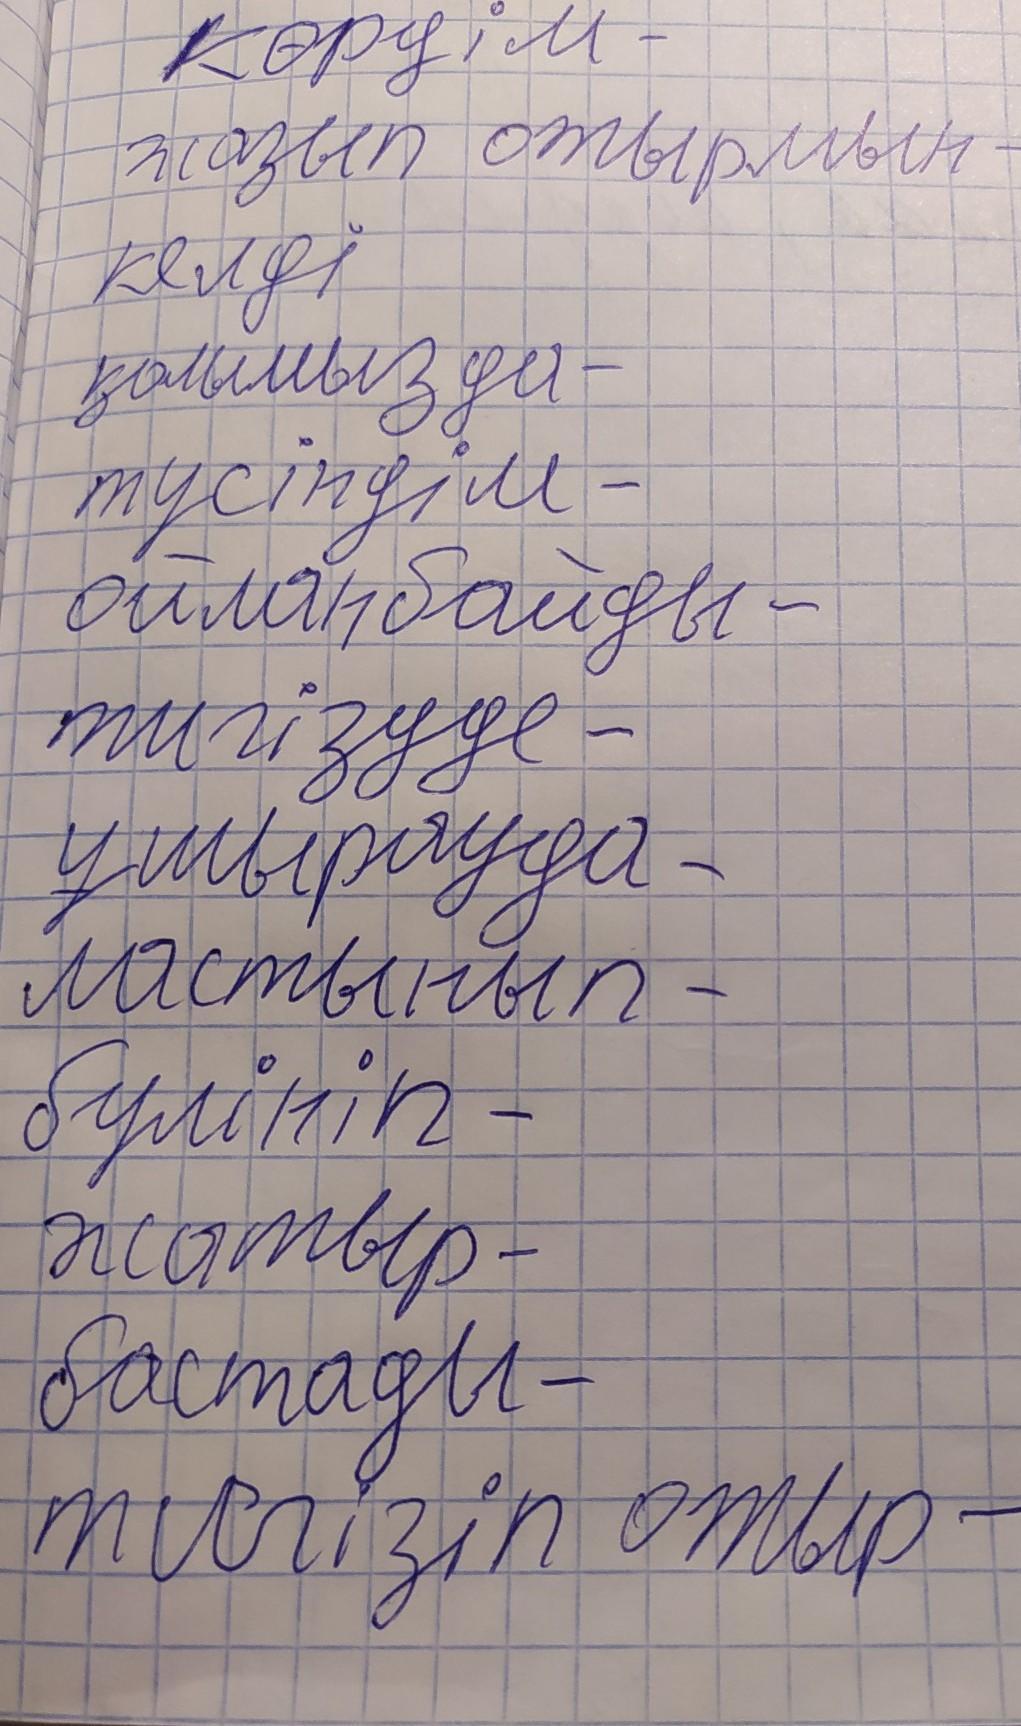 көруім -
жазып отырмын -
келді
қолымызда -
түсіндім -
ойланбайды -
тигізуде -
ұшырауда -
ластынып -
бүлініп -
жатыр -
бастады -
тигізіп отыр -